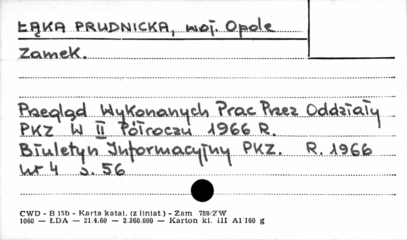 ŁĄKA PRUDNICKA, woj. Opole
Zamek.
Przegląd Wykonanych Prac Przez Oddziały
PKZ W II Półroczu 1966 R.
Biuletyn Informacyjny PKZ. R. 1966
nr 4 s. 56
CWD - B 15b - Karta katal. (z liniat.) - Zam 788/ZW
1060 — ŁDA — 21.4.60 — 2.360.000 — Karton kl. III A1 160 g